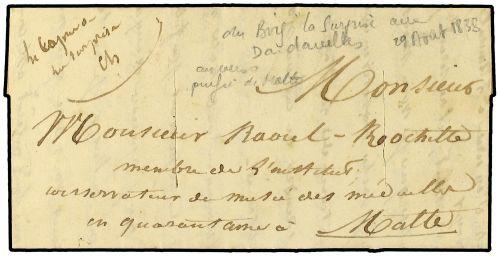 du Brig la Surprise aux
Dardanelles
29 Aout 1838
au verso
purifié de Malte
la Surprise
Monsieur
Monsieur Raoul-Rochette
membre de l'institut
conservateur du musée des médailles
en quarantaine à Malte